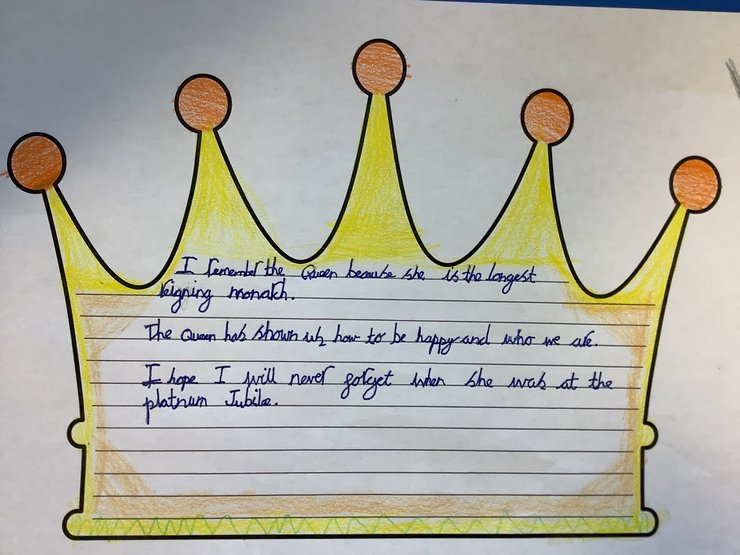 I remember the Queen because she is the longest
reigning monarch.
The Queen has shown us how to be happy and who we are.
I hope I will never forget when she was at the
platnum Jubilee.